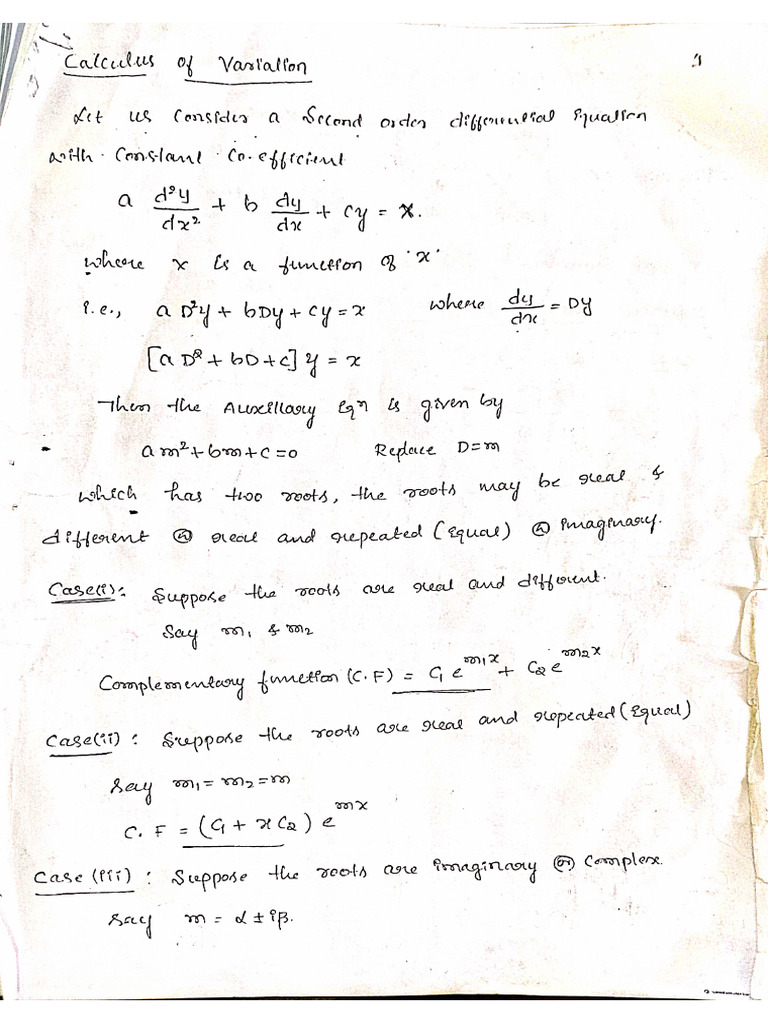 Calculus of Variation
Let us Consider a Second order differential Equation
with Constant Co-efficient
a d²y/dx² + b dy/dx + cy = X.
where x is a function of 'x'
i.e., a D²y + bDy + cy = x where dy/dx = Dy
[a D² + bD + c] y = x
Then the Auxillary Eqn is given by
am² + bm + c = 0 Replace D = m
which has two roots, the roots may be real &
different (or) real and repeated (Equal) (or) imaginary.
Case(i): Suppose the roots are real and different.
Say m₁ & m₂
Complementary function (C.F) = C₁ e^m₁x + C₂ e^m₂x
Case(ii): Suppose the roots are real and repeated (Equal)
Say m₁ = m₂ = m
C.F = (C₁ + x C₂) e^mx
Case (iii): Suppose the roots are imaginary (or) Complex.
Say m = α ± iβ.